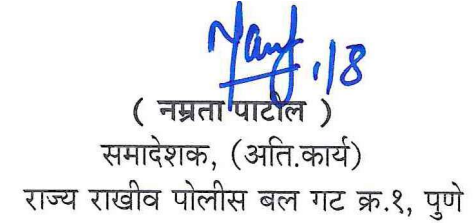 ( नम्रता पाटील )
समादेशक, (अति.कार्य)
राज्य राखीव पोलीस बल गट क्र.१, पुणे